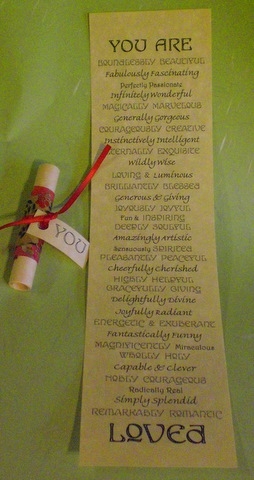 YOU ARE
BOUNDLESSLY BEAUTIFUL
Fabulously Fascinating
Perfectly Passionate
Infinitely Wonderful
MAGICALLY MARVELOUS
Generally Gorgeous
COURAGEOUSLY CREATIVE
Instinctively Intelligent
ETERNALLY EXQUISITE
Wildly Wise
LOVING & Luminous
BRILLIANTLY BLESSED
Generous & Giving
JOYOUSLY JOYFUL
Fun & INSPIRING
DEEPLY SOULFUL
Amazingly Artistic
Sensuously SPIRITED
PLEASANTLY PEACEFUL
Cheerfully Cherished
HIGHLY HELPFUL
GRACEFULLY GIVING
Delightfully Divine
Joyfully Radiant
ENERGETIC & EXUBERANT
Fantastically Funny
MAGNIFICENTLY Miraculous
WHOLLY HOLY
Capable & Clever
NOBLY COURAGEOUS
Radically Real
Simply Splendid
REMARKABLY ROMANTIC
LOVED
YOU